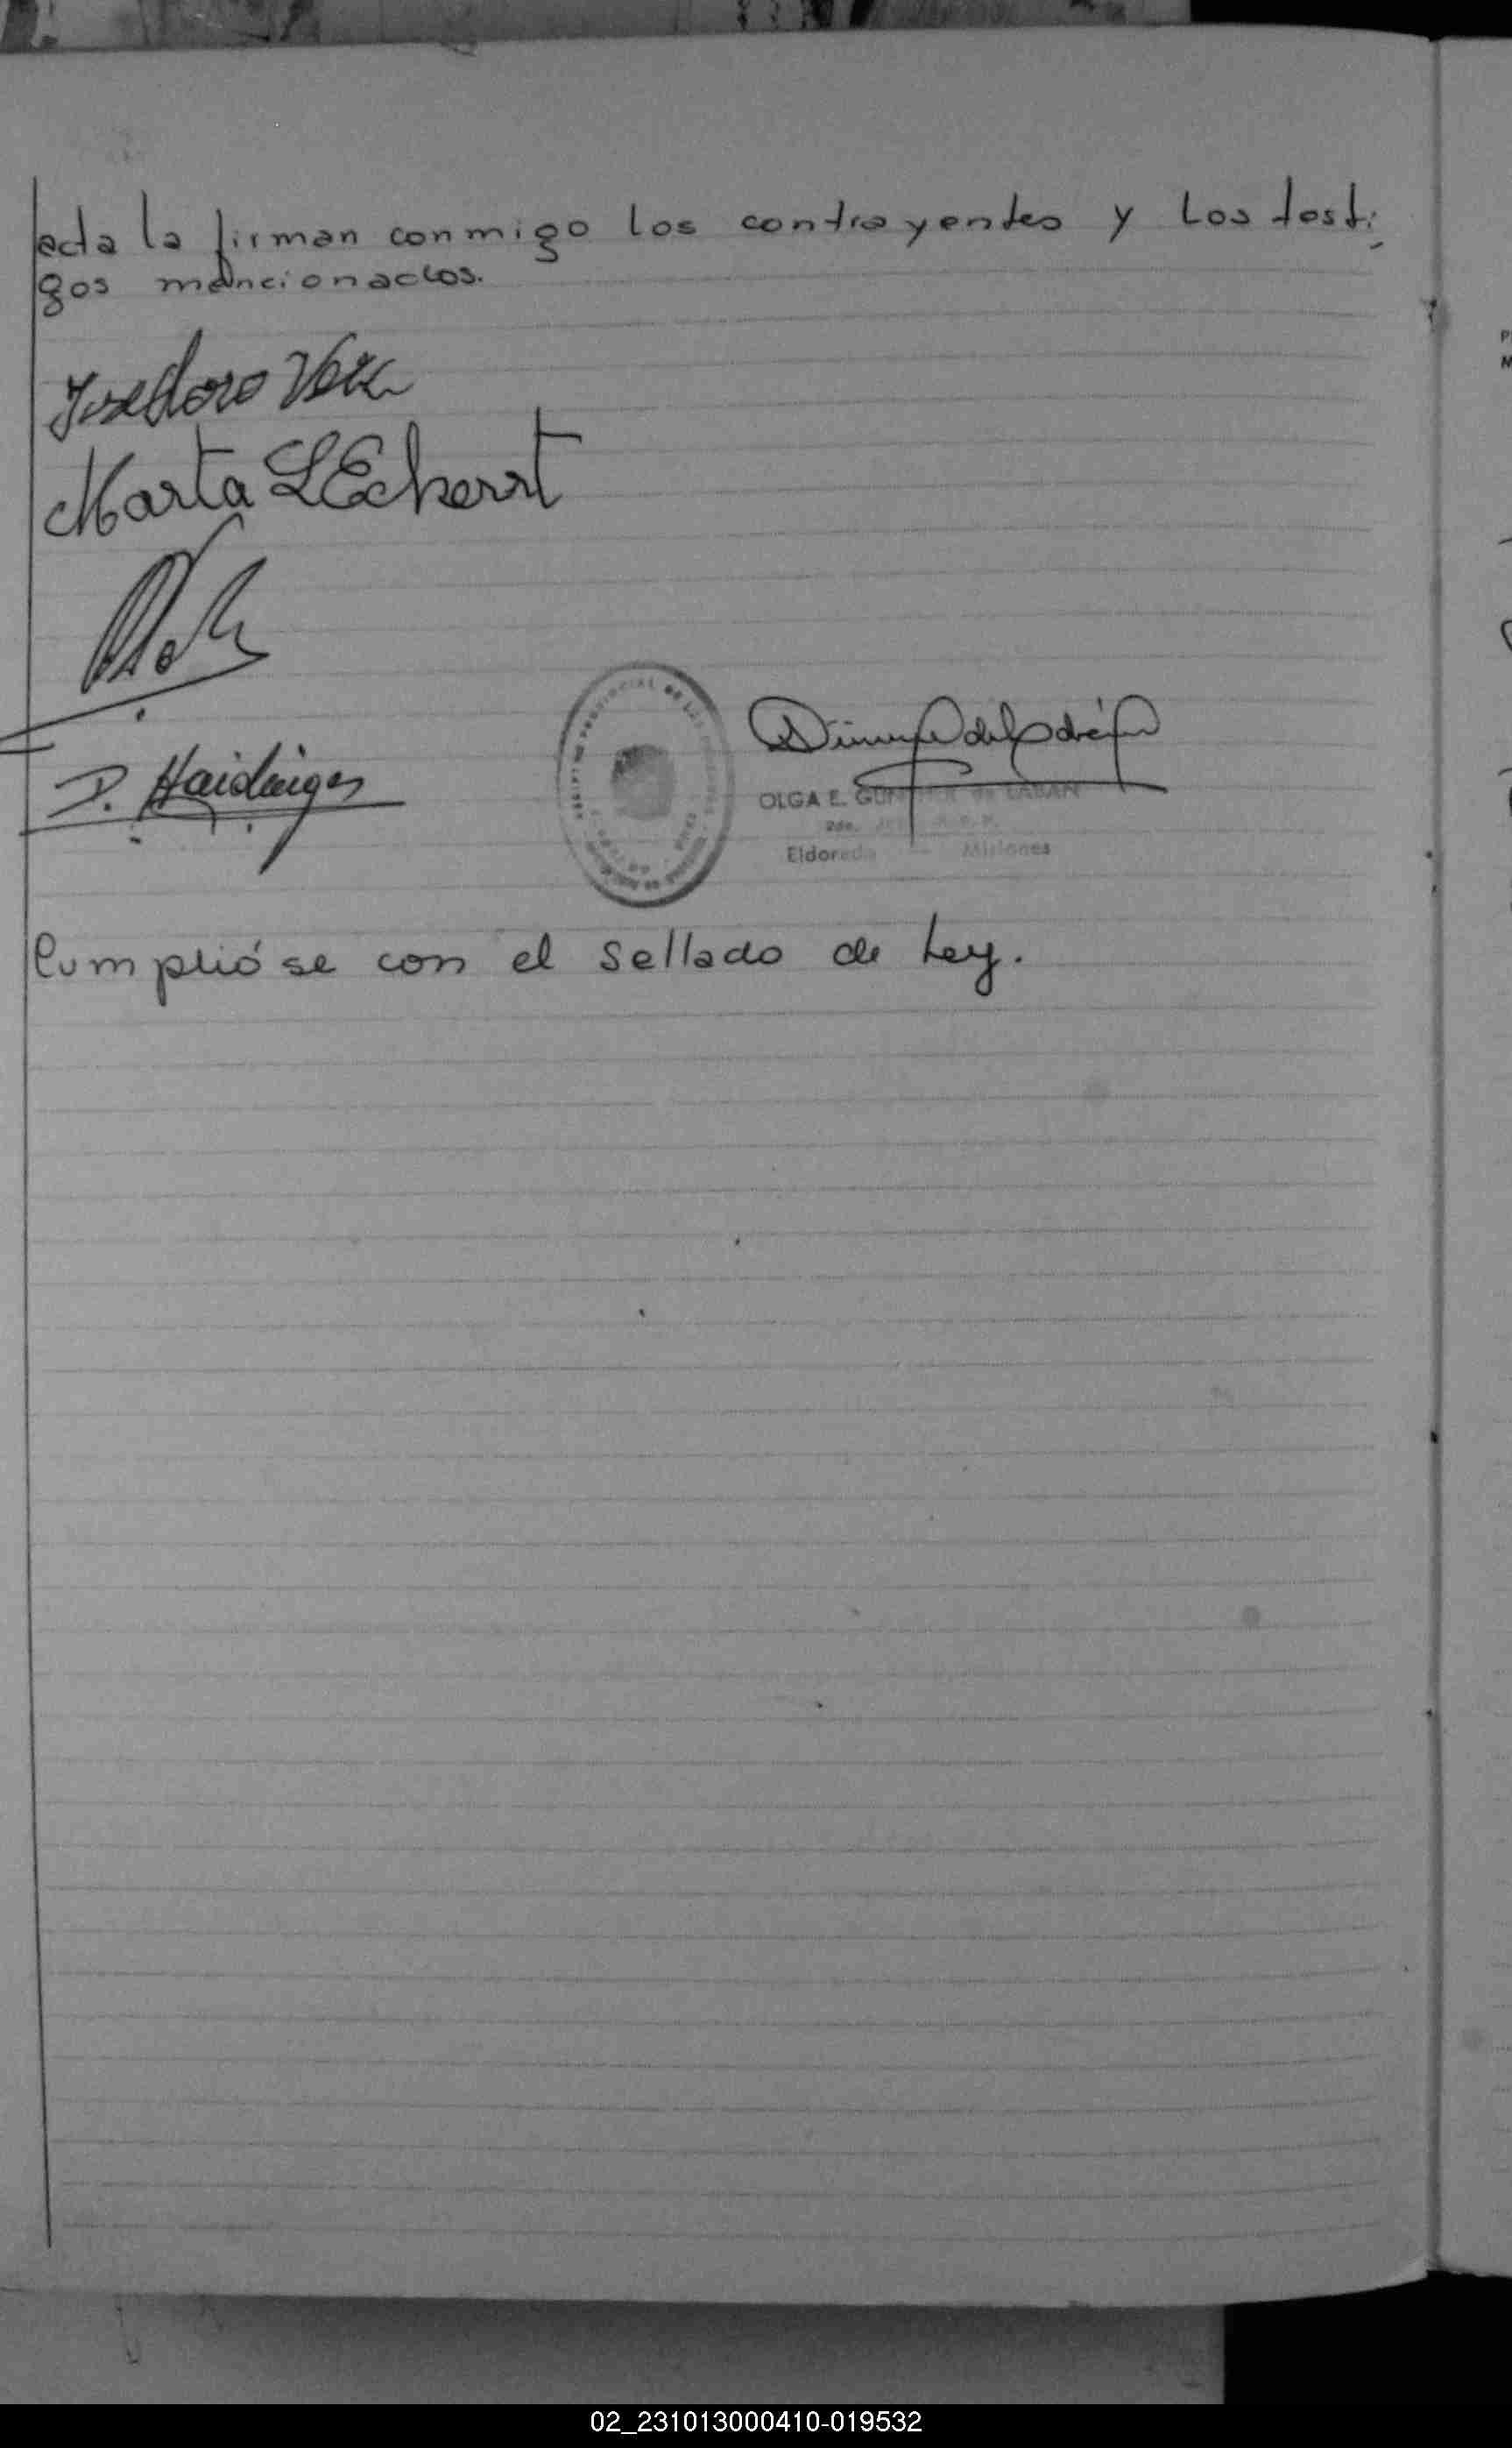 acta la firman conmigo los contrayentes y los testi-
gos mencionados.
Isedoro
Marta L Eckerrt
D. Haidinger
PROVINCIAL DE LAS
OLGA E. GUNTHER de LABAN
2da. R. P.
Eldorado — Misiones
Cumplióse con el sellado de Ley.
02_231013000410-019532